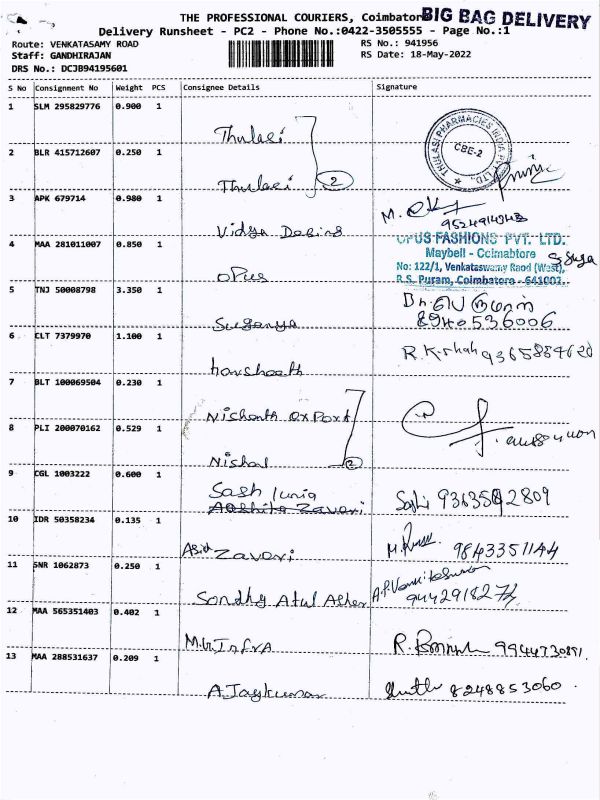 THE PROFESSIONAL COURIERS, Coimbator
BIG BAG DELIVERY
Delivery Runsheet - PC2 - Phone No.:0422-3505555 - Page No.:1
Route: VENKATASAMY ROAD
RS No.: 941956
Staff: GANDHIRAJAN
RS Date: 18-May-2022
DRS No.: DCJB94195601
S No Consignment No Weight PCS Consignee Details Signature
1 SLM 295829776 0.900 1 Thulasi
THULASI PHARMACIES INDIA PVT. LTD.
CBE-2
2 BLR 415712607 0.250 1 Thulasi 2
3 APK 679714 0.980 1 Vidya Desing M.
4 MAA 281011007 0.850 1 opus
OPUS FASHIONS PVT. LTD.
Maybell - Coimabtore
No: 122/1, Venkataswamy Raod (West),
R.S. Puram, Coimbatore - 641002.
5 TNJ 50008798 3.350 1 Suganya 8940536006
6 CLT 7379970 1.100 1 harsheeth R.K.shah
7 BLT 100069504 0.230 1 Nishanth export
8 PLI 200070162 0.529 1 Nishal 2
9 CGL 1003222 0.600 1 Sash
10 IDR 50358234 0.135 1 Zavari 9843351144
11 SNR 1062873 0.250 1 Sondhy Atul
12 MAA 565351403 0.402 1 M.G Infra R.
13 MAA 288531637 0.209 1 A.Jaykumar 8248853060